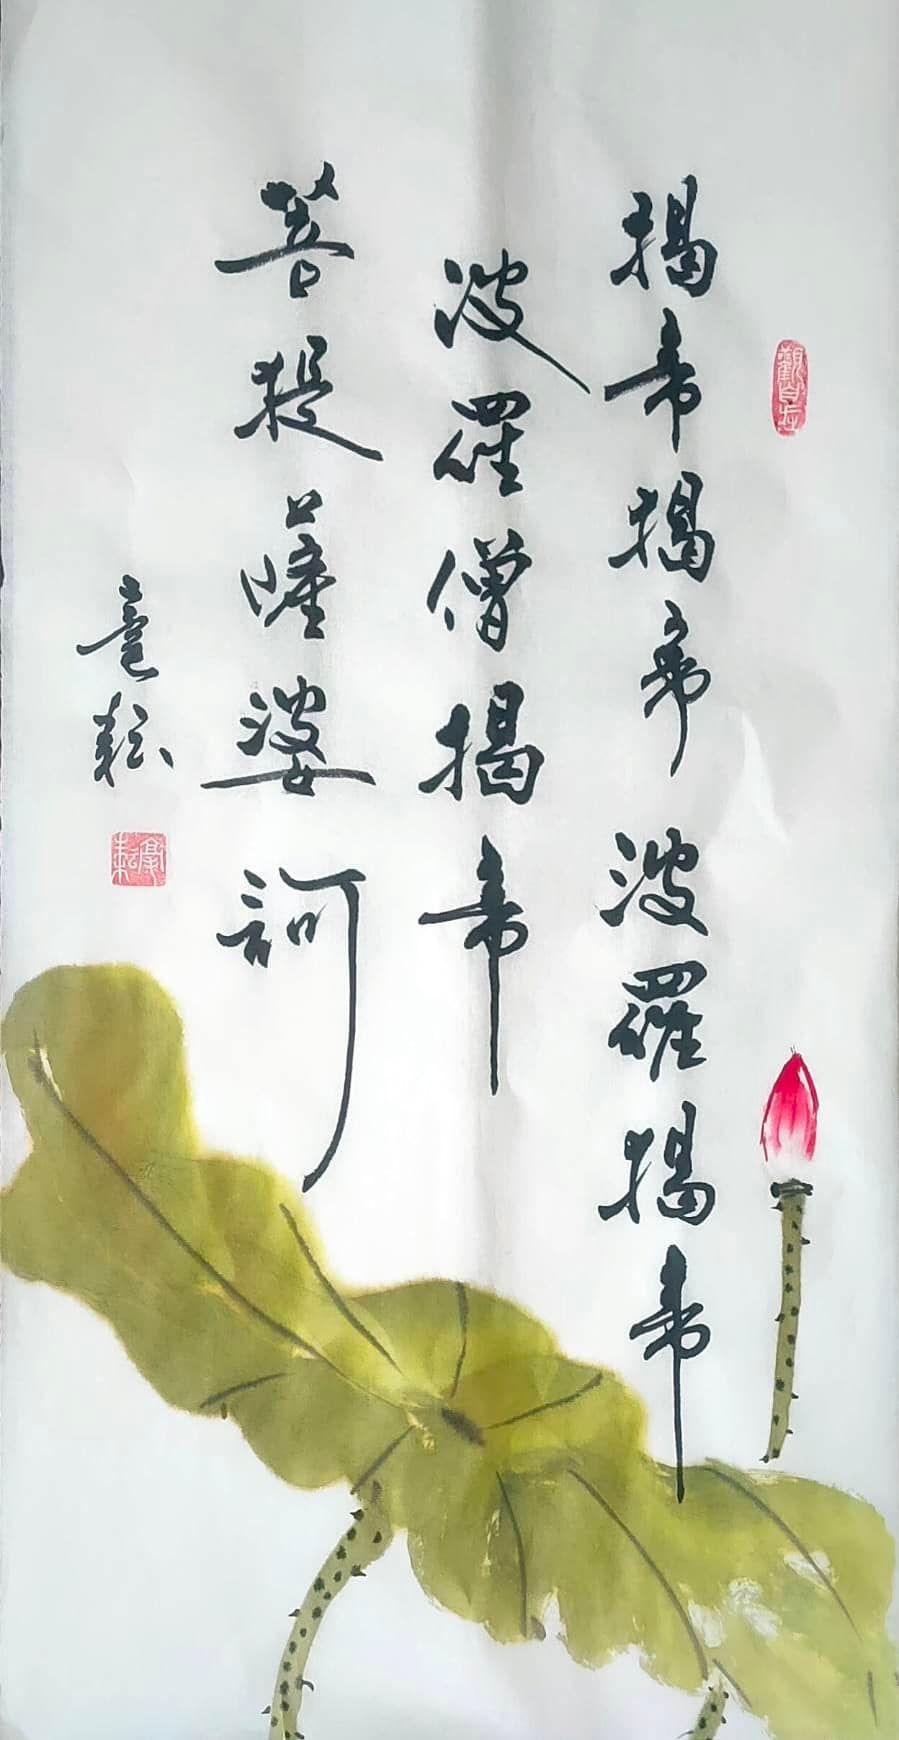 觀自在
揭帝揭帝波羅揭帝
波羅僧揭帝
菩提薩婆訶
毫耘